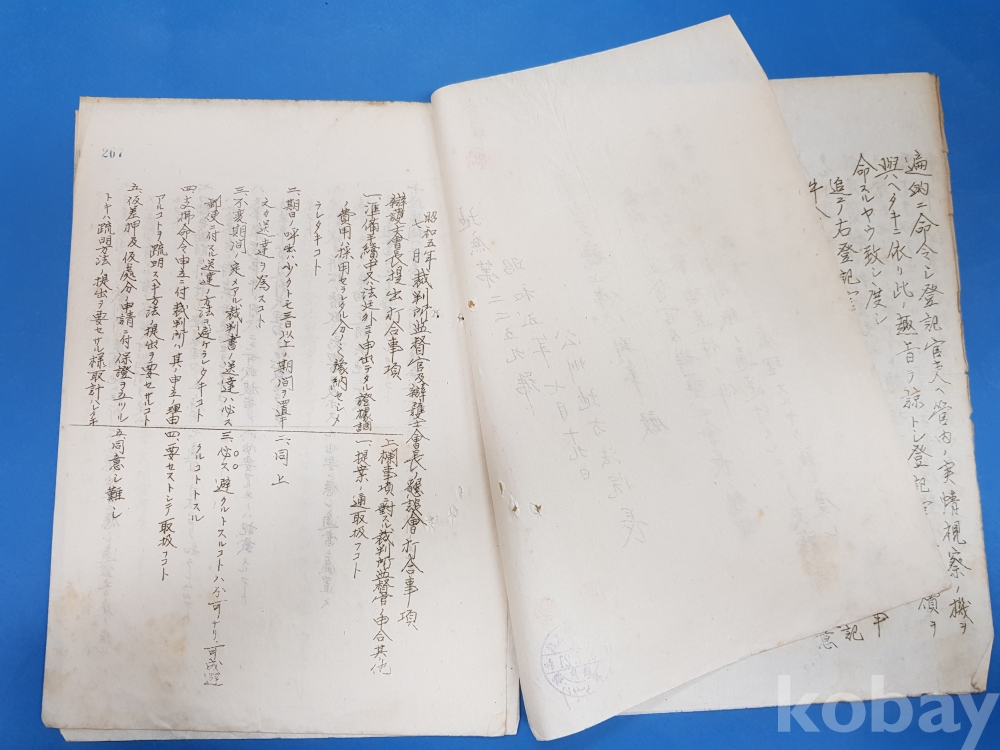 遍納ニ命令シ登記官吏ヘ管内ノ実情視察ノ機ヲ
與ヘタキニ依リ此ノ趣旨ヲ諒トシ登記
命スルヤウ致シ度シ
追テ右登記
昭和五年
七月 裁判所監督官及辯護士會長ノ懇談會打合事項
辯護士會長提出打合事項
上欄事項ニ對スル裁判所監督官ノ申合其他
一、準備手續中又ハ法廷外ニテ申出テタル證據調
ノ費用ハ採用セラレタル分ノミ豫納セシメ
ラレタキコト
一、提案ノ通取扱フコト
二、期日ノ呼出ハ少クトモ三日以上ノ期間ヲ置キ
之カ送達ヲ為スコト
二、同上
三、不変期間ノ定メアル裁判書ノ送達ハ必ス
郵便ニ付スル送達ノ方法ヲ避ケラレタキコト
三、必ス避クルトスルコトハ不可ナリ、可成避
クルコトトスル
四、支拂命令申立ニ付裁判所ハ其ノ申立ノ理由
アルコトヲ疏明スヘキ方法ノ提出ヲ要セサルコト
四、要セストシテ取扱フコト
五、仮差押及仮處分ノ申請ニ付保證ヲ立ツル
トキハ疏明方法ノ提出ヲ要セサル様取計ハレタキ
五、同意シ難シ
267
昭和五年七月十九日
公州地方法院長
kobay